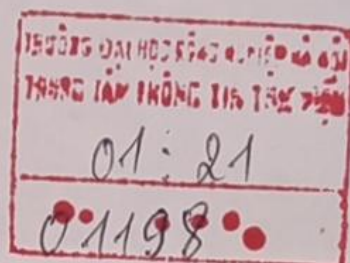 TRƯỜNG ĐẠI HỌC CÔNG NGHIỆP HÀ NỘI
TRUNG TÂM THÔNG TIN THƯ VIỆN
01: 21
01198